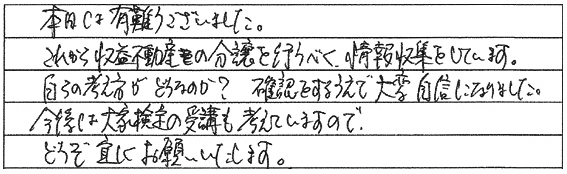 本日は有難うございました。
これから収益不動産の分譲を行うべく、情報収集をしています。
自らの考え方がどうなのか？ 確認をするうえで大変自信になりました。
今後は大家検定の受講も考えていますので、
どうぞ宜しくお願いいたします。